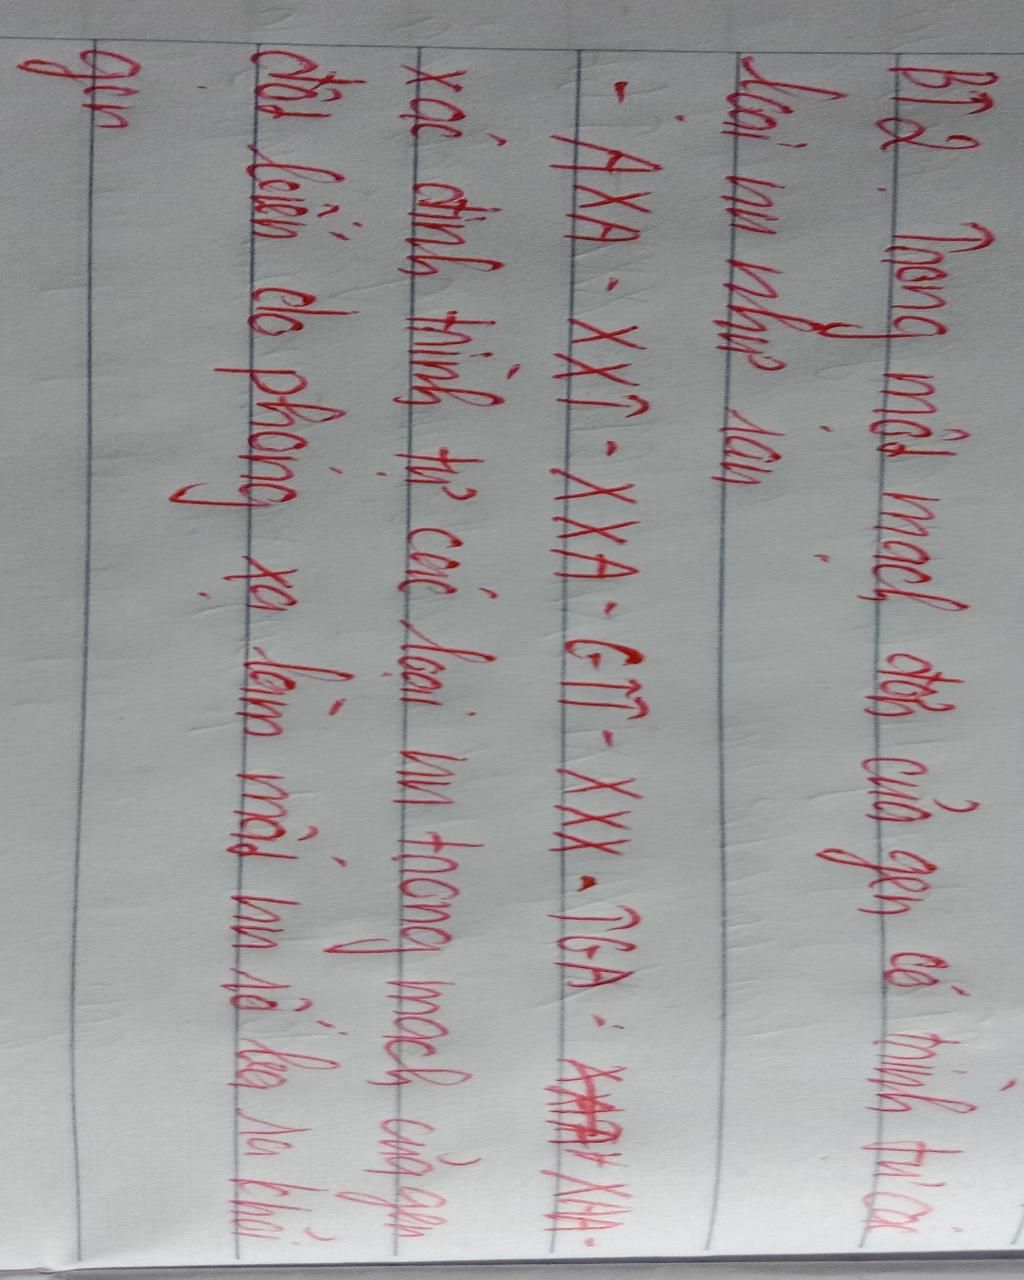 BT2. Trong một mạch đơn của gen có trình tự các
loại nu như sau
- AXA - XXT - XXA - GTT - XXX - TGA - XAA -
xác định trình tự các loại nu trong mạch của gen
đột biến do phóng xạ làm mất nu số ba ra khỏi
gen